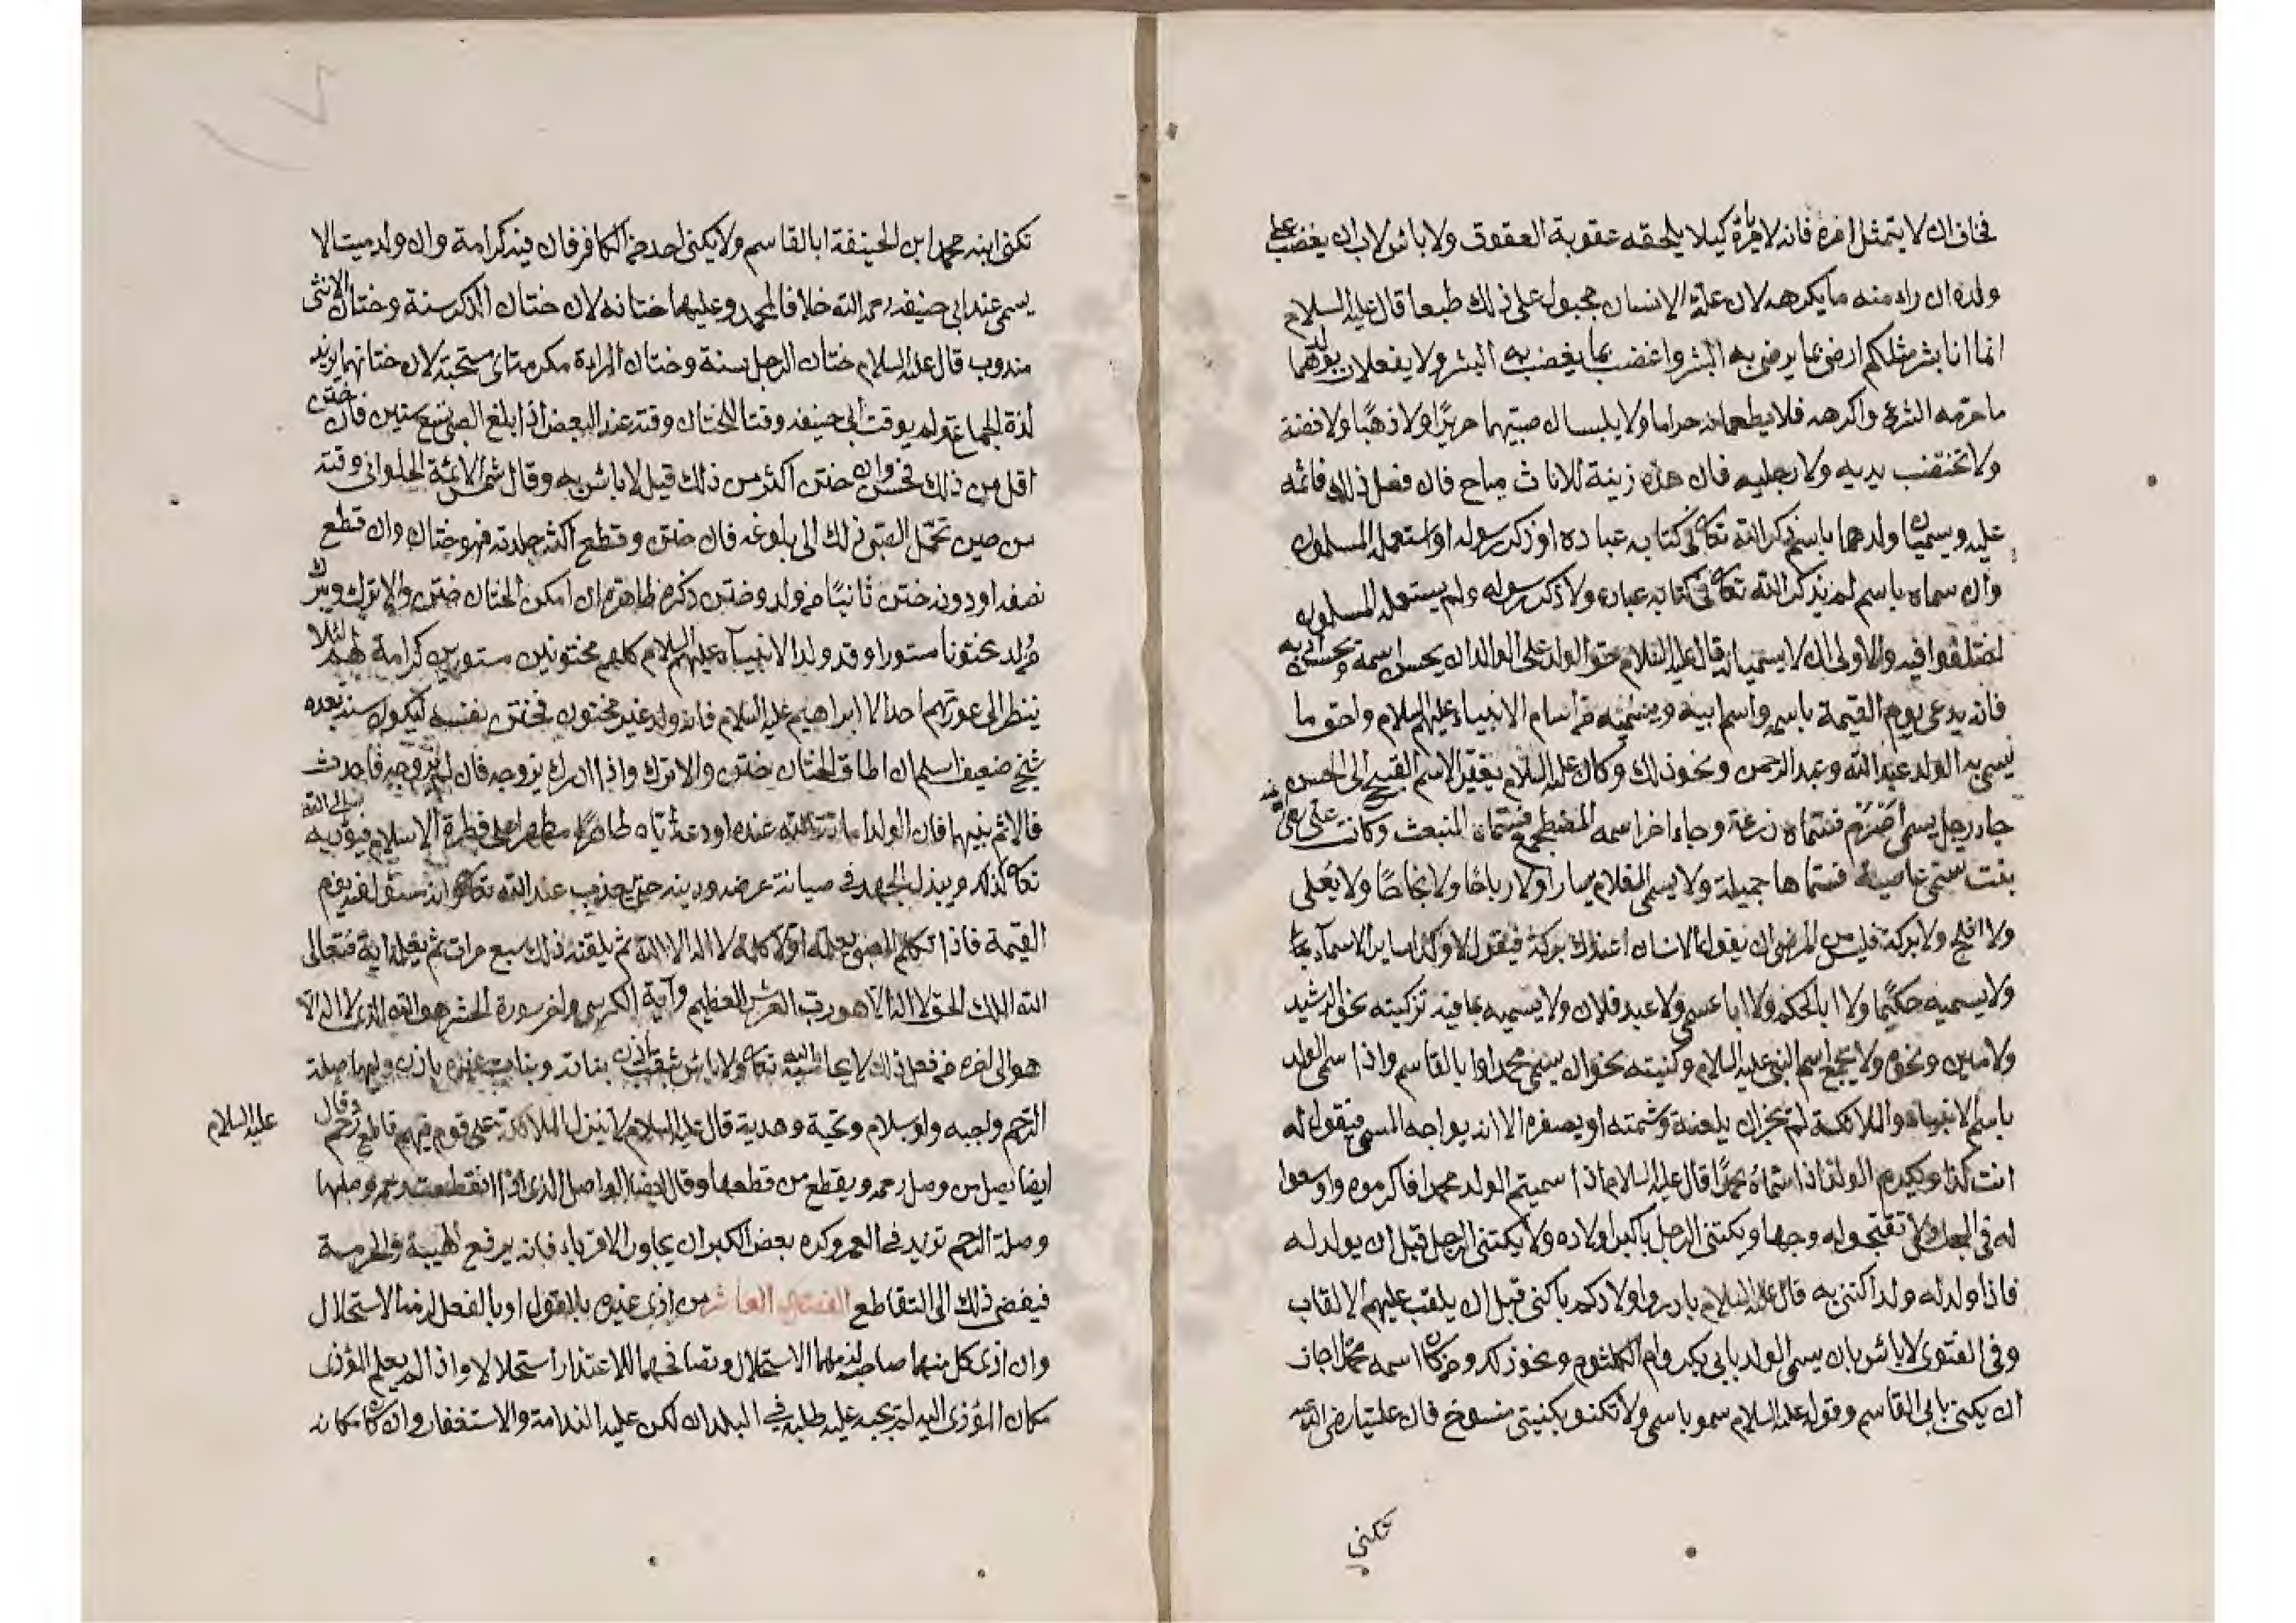 فخاف ان لا يتمثل امره فانه لا يأمره كيلا يلحقه عقوبة العقوق ولا باس لاب ان يغضب على
ولده ان راى منه ما يكرهه لان الانسان مجبول على ذلك طبعا قال عليه السلام
انما انا بشر مثلكم ارضى بما يرضى به البشر واغضب بما يغضب به البشر ولا يفعلان بولدهما
ما حرمه الشرع واكرهه فلا يطعمانه حراما ولا يلبسان صبيهما حريرًا ولا ذهبًا ولا فضة
ولا تختضب يديه ولا رجليه فان هذه زينة للاناث مباح فان فعل ذلك فاثمه
عليه ويسميان ولدهما باسم ذكر الله تعالى في كتابه عباده او ذكر رسوله او استعمله المسلمون
وان سماه باسم لم يذكر الله تعالى في كتابه عباده ولا ذكر رسوله ولم يستعمله المسلمون
اختلفوا فيه والاولى ان لا يسميانه قال عليه السلام حق الولد على الوالد ان يحسن اسمه ويحسن ادبه
فانه يدعى يوم القيمة باسمه واسم ابيه ويسميه من أسام الانبياء عليهم السلام واحق ما
يسمى به الولد عبد الله وعبد الرحمن ونحو ذلك وكان عليه السلام يغير الاسم القبيح الى الحسن
جاء رجل يسمى أصرم فسماه زرعة وجاء اخر اسمه المضطجع فسماه المنبعث وكانت
بنت تسمى عاصية فسماها جميلة ولا يسمى الغلام يسارا ولا رباحًا ولا نجاحًا ولا يعلى
ولا افلح ولا بركة فليس من المرضى ان يقول الانسان اعندك بركة فيقول لا وكذا ساير الاسماء
ولا يسميه حكيمًا ولا ابا الحكم ولا ابا عيسى ولا عبد فلان ولا يسميه بما فيه تزكيته نحو الرشيد
ولامين ونحوه ولا يجمع اسم النبي عليه السلام وكنيته نحو ان يسمى محمدا وابا القاسم واذا سمى الولد
باسم الانبياء والملائكة لم يجز ان يلعنه وشتمته او يصغره الا انه يواجه المسمى فيقول له
انت كذا ويكرم الولد اذا سماه محمدًا قال عليه السلام اذا سميتم الولد محمدا فاكرموه واوسعوا
له في المجلس ولا تقبحوا له وجها ويكتنى الرجل باكبر اولاده ولا يكتنى الرجل قبل ان يولد له
فاذا ولد له ولد اكتنى به قال عليه السلام بادروا اولادكم بالكنى قبل ان يلقب عليهم الالقاب
وفي الفتوى لا باس بان يسمى الولد بابي بكر وام الكلثوم ونحو ذلك ومن كان اسمه محمد اجاز
ان يكنى بابي القاسم وقوله عليه السلام سمو باسمى ولا تكنو بكنيتى منسوخ فان عليا رضى الله عنه
تكنى
تكنى ابنه محمد ابن الحنيفة ابا القاسم ولا يكنى احد من الكافر فان فيه كرامة وان ولد ميت لا
يسمى عند ابي حنيفه رحمه الله خلافا لمحمد وعليهما ختانه لان ختان الذكر سنة وختان الانثى
مندوب قال عليه السلام ختان الرجل سنة وختان المراءة مكرمة اى مستحبة لان ختانهما يزيد
لذة الجماع ولم يوقت ابي حنيفه وقتا للختان وقته عند البعض اذا بلغ الصبى تسع سنين فان ختن
أقل من ذلك فحسن وان ختن اكثر من ذلك قيل لا باس به وقال شمس الائمة الحلوانى وقته
من حين تحمل الصبى ذلك الى بلوغه فان ختن وقطع اكثر جلدته فهو ختان وان قطع
نصفه او دونه ختن ثانيًا من ولد وختن ذكره ظاهر ان امكن الختان ختن والا ترك
من ولد مختونا مستورا وقد ولد الانبياء عليهم السلام كلهم مختونين مستورين كرامة لهم لئلا
ينظر الى عورتهم احد الا ابراهيم عليه السلام فانه ولد غير مختون فختن بنفسه ليكون سنة بعده
شيخ ضعيف اسلم ان اطاق الختان يختن والا ترك واذا ادرك يزوجه فان لم يزوجه فاحدث
فالاثم بينهما فان الولد امانة الله عنده اودعه اياه طاهرًا مطهرا على فطرة الاسلام فيؤديه الى الله
تعالى كذلك ويبذل الجهد في صيانة عرضه ودينه حتى يعذب عند الله تعالى يوم
القيمة فاذا تكلم الصبى يعلمه اولا كلمة لا اله الا الله ثم يلقنه ذلك سبع مرات ثم يعلمه اية فتعالى
الله الملك الحق لا اله الا هو رب العرش العظيم وآية الكرسى واخر سورة الحشر هو الله الذى لا اله الا
هو الى اخره من فعل ذلك لا يحاسبه الله تعالى ولا باس بثقب اذن بناته وبنات غيره باذن وليها صلة
الرحم واجبه ولو بسلام وتحية وهدية قال عليه السلام لا ينزل الملائكة على قوم فيهم قاطع رحم وقال
عليه السلام
ايضا يصل من وصل رحمه ويقطع من قطعها وقال ايضا الواصل الذى اذا انقطعت رحمه وصلها
وصلة الرحم تزيد في العمر وكره بعض الكبر ان يجاور الاقرباء فانه يرفع الهيبة والحرمة
فيفضى ذلك الى التقاطع الفصل العاشر من اذى غيره بلا قول او بالفعل لزمه الاستحلال
وان اذى كل منهما صاحبه لزمهما الاستحلال وتصافحهما للاعتذار استحلالا واذا لم يعلم المؤذى
مكان المؤذى اليه لم يجب عليه طلبه في البلدان لكن عليه الندامة والاستغفار وان كان مكانه